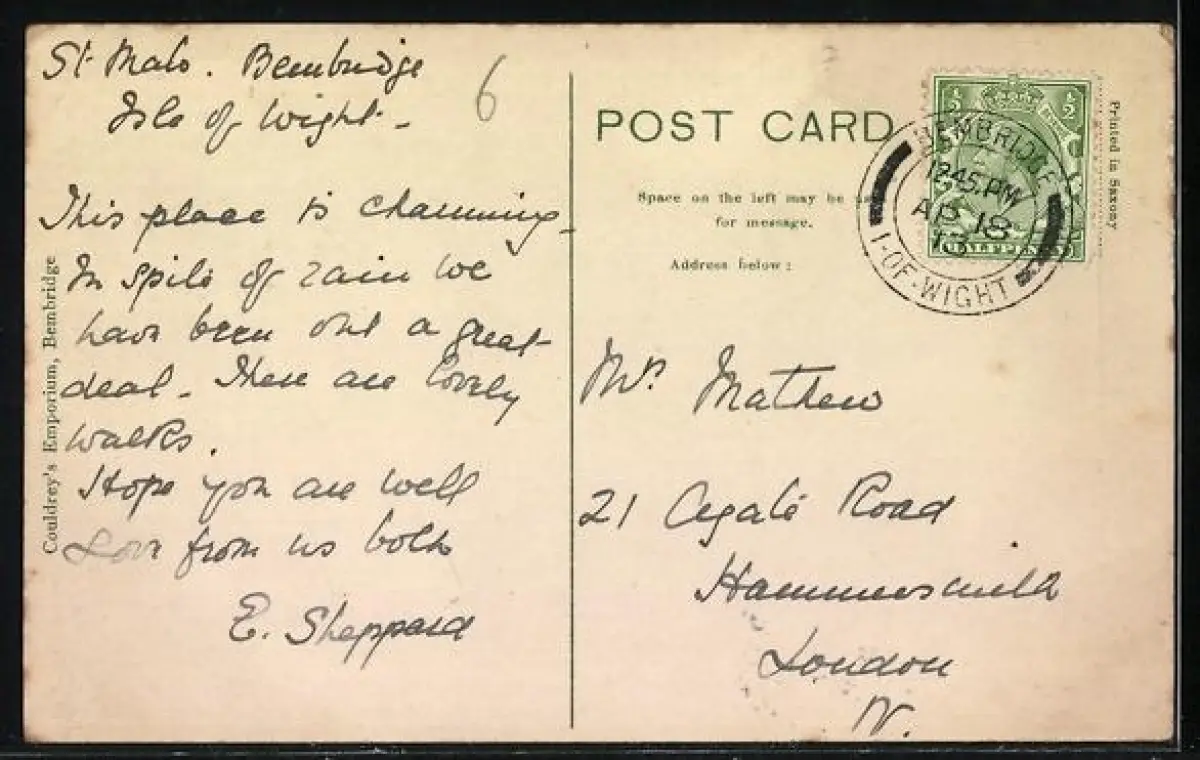 St Malo. Bembridge
Isle of Wight -
6
This place is charming -
In spite of rain we
have been out a great
deal. There are lovely
walks.
Hope you are well
Love from us both
E. Sheppard
Couldrey's Emporium, Bembridge
POST CARD
Space on the left may be
for message.
Address below:
Printed in Saxony
½ ½
HALFPENNY
BEMBRIDGE
12.45 PM
AP 18
13
I-OF-WIGHT
Mrs Mathew
21 Agate Road
Hammersmith
London
W.